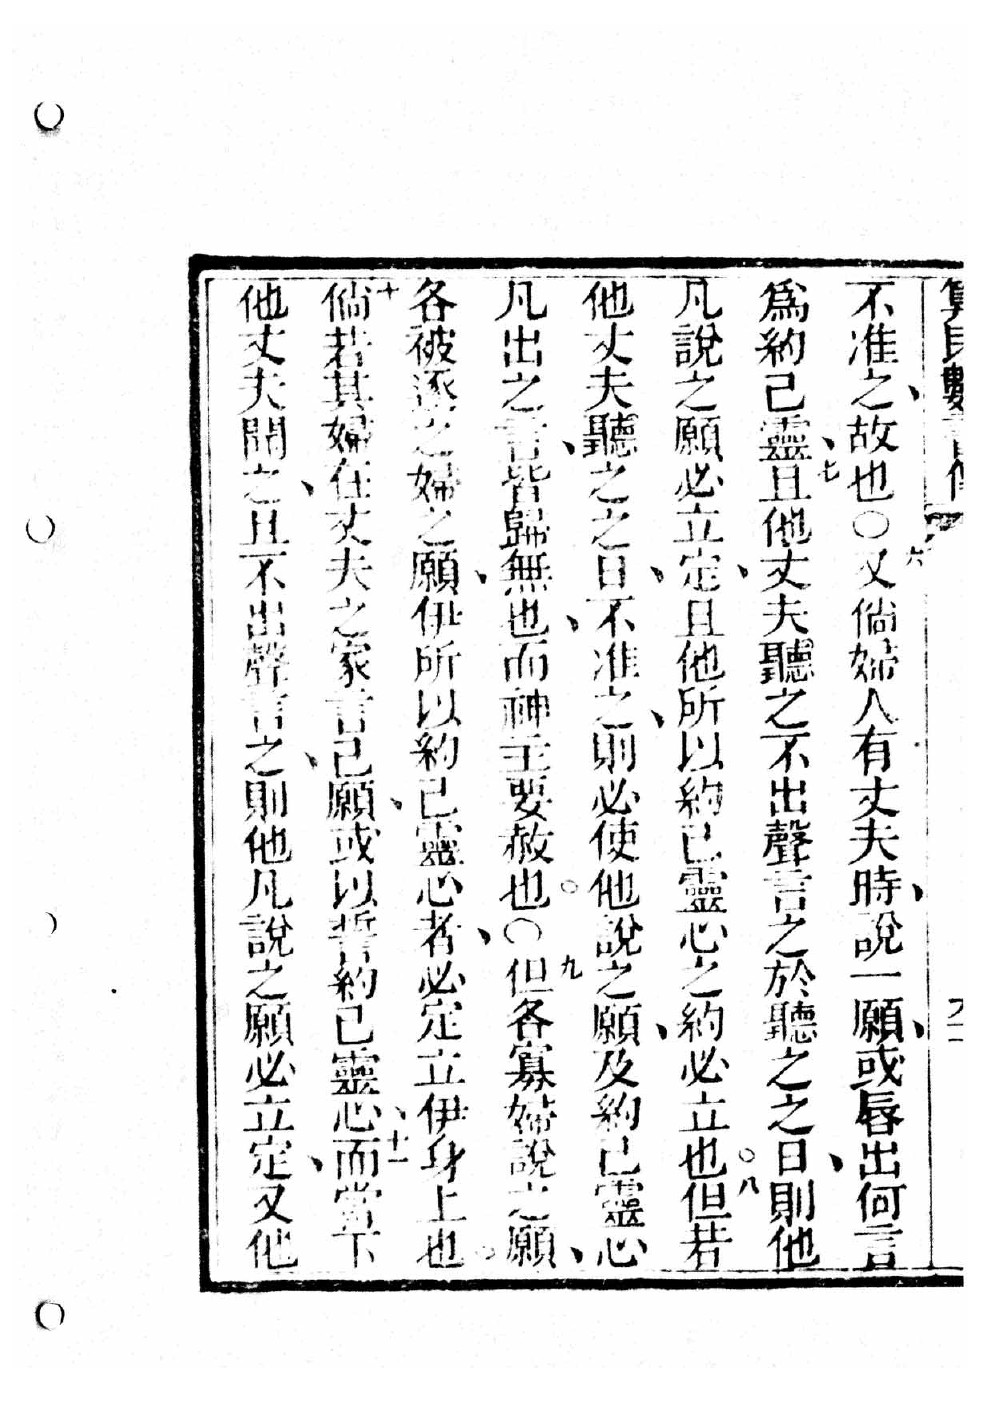 算民數書傳 九十一
不准之、故也○六又倘婦人有丈夫時、說一願、或唇出何言
爲約己靈、七且他丈夫聽之不出聲言之於聽之之日、則他
凡說之願必立定、且他所以約己靈心之約必立也○八但若
他丈夫聽之之日、不准之、則必使他說之願、及約己靈心
凡出之言、皆歸無也、而神主要赦也○○九但各寡婦說之願、
各被逐之婦之願、伊所以約己靈心者、必定立伊身上也○
十倘若其婦在丈夫之家言己願、或以誓約己靈心、十一而當下
他丈夫聞之、且不出聲言之、則他凡說之願必立定、又他